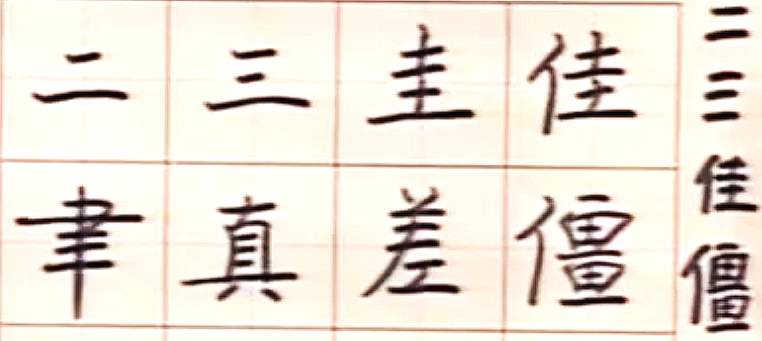 二三圭佳
聿真差僵
二三佳僵